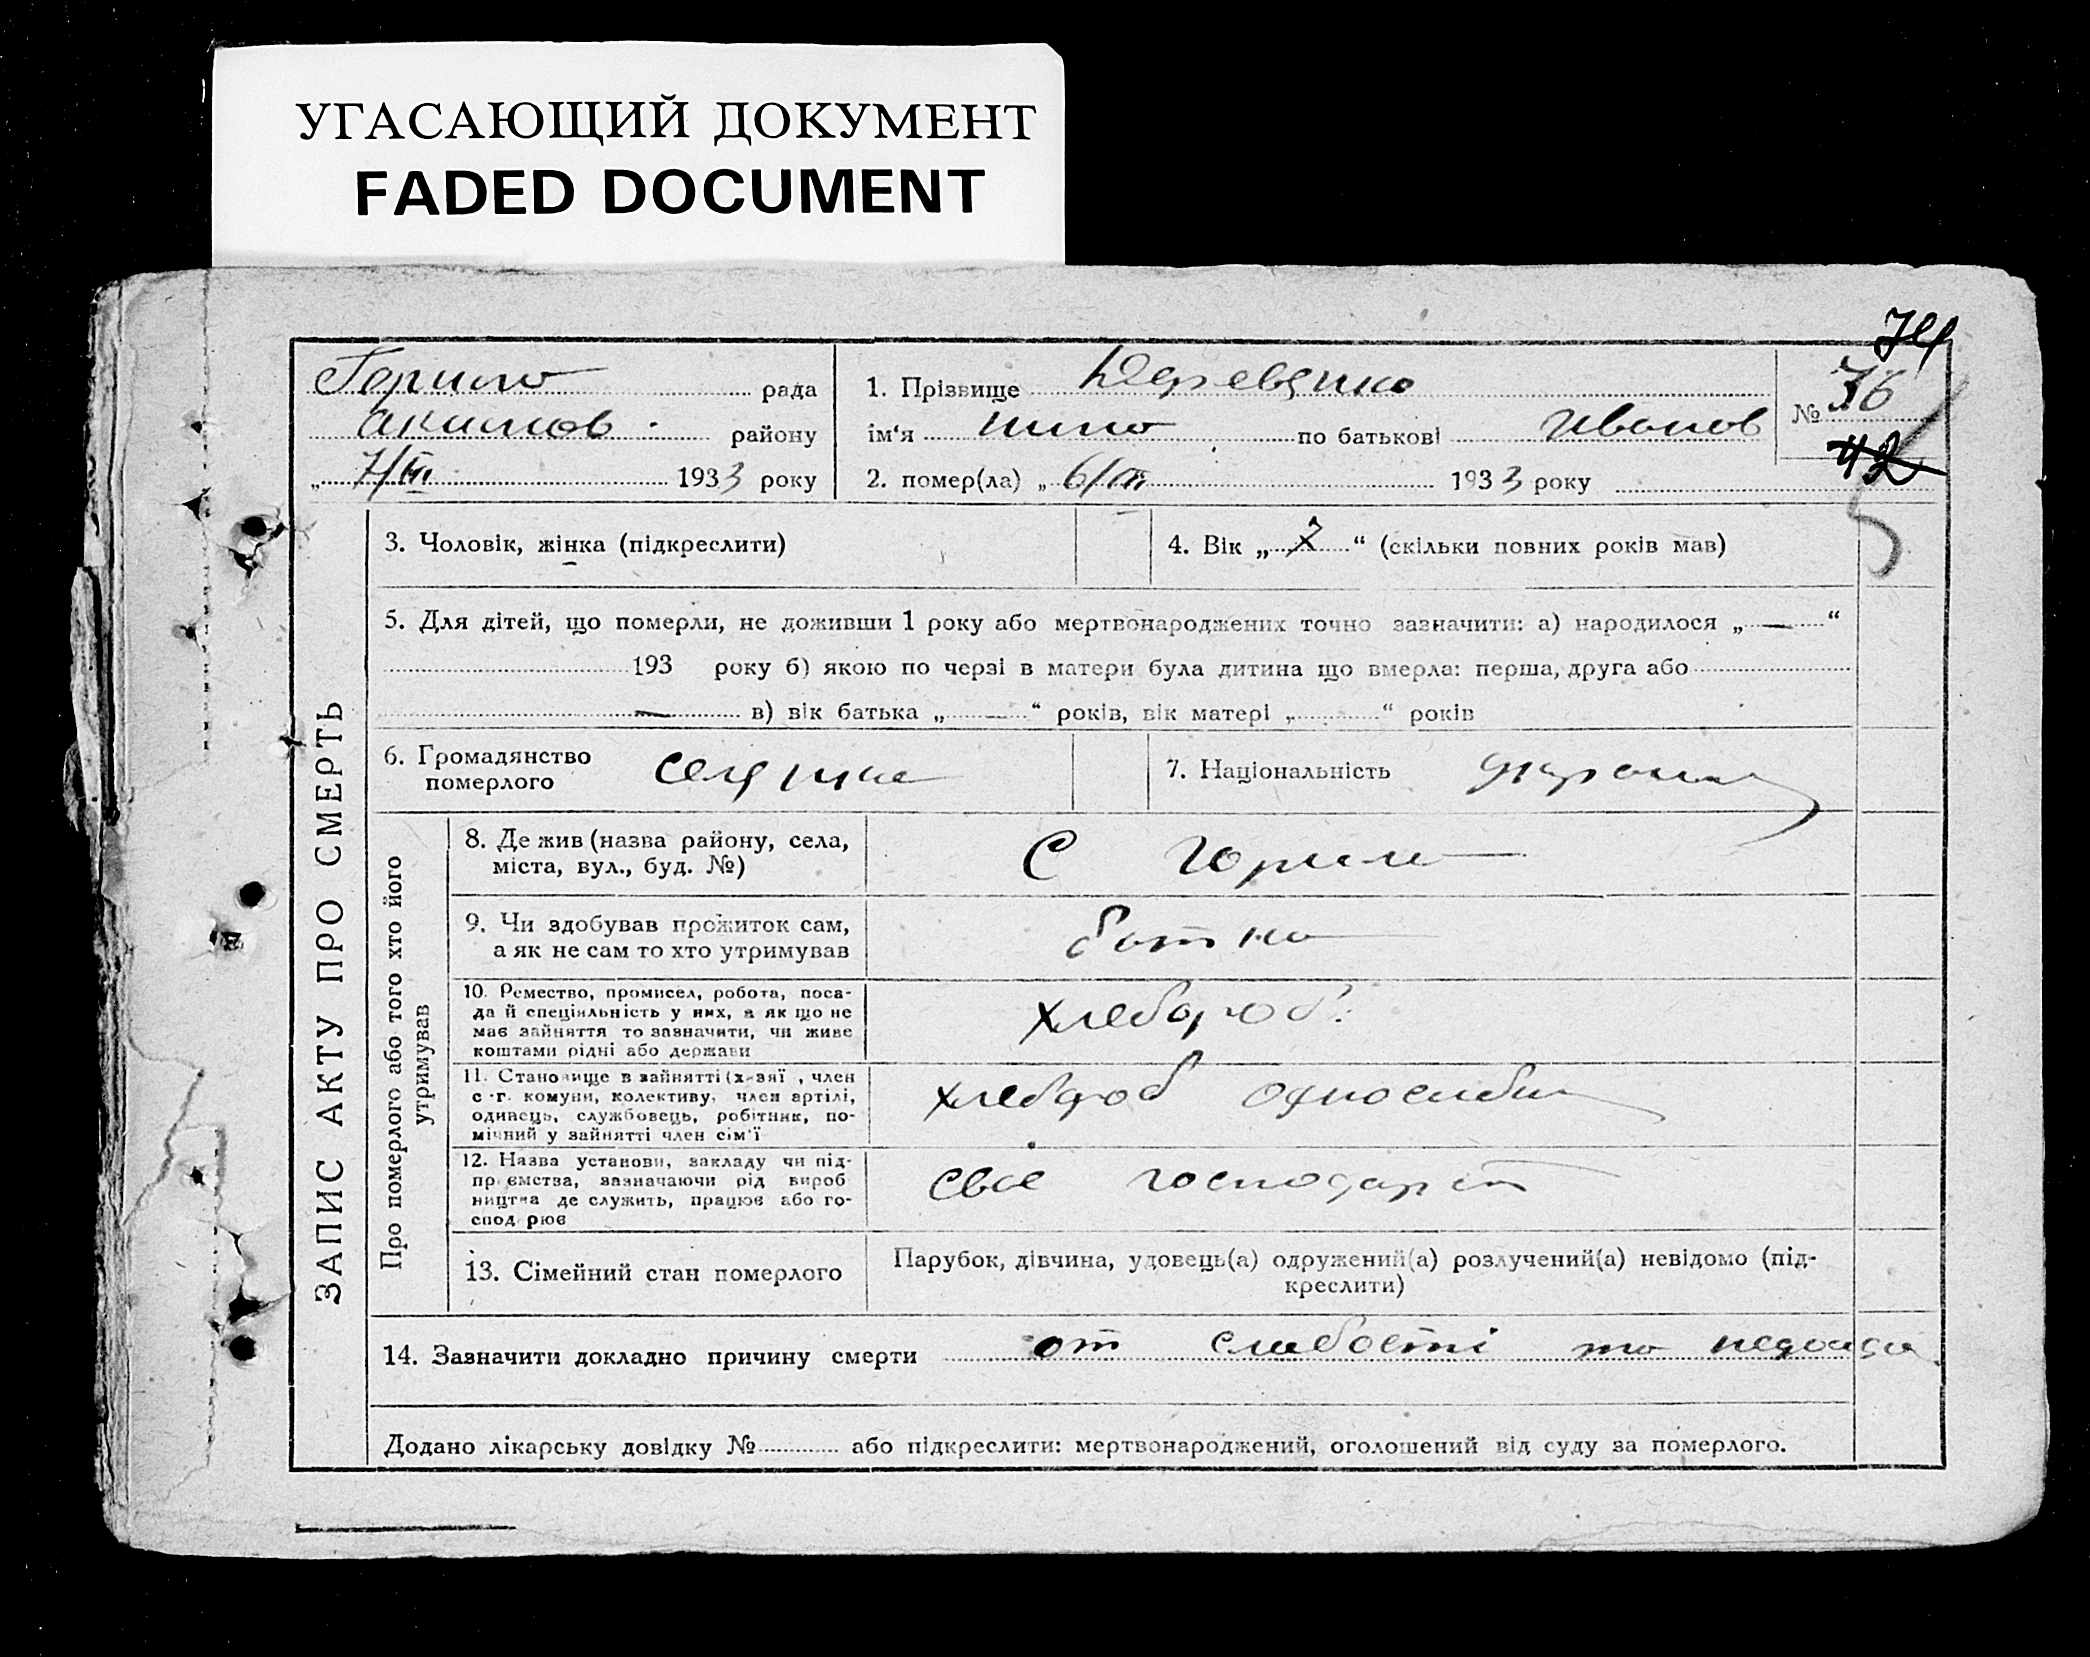 УГАСАЮЩИЙ ДОКУМЕНТ
FADED DOCUMENT
рада
Акимов району
„ 7/III 1933 року
1. Прізвище Деревянко
ім‘я Нина по батькові Иванов
2. помер(ла) „ 6/III 1933 року
№ 36
74
42
ЗАПИС АКТУ ПРО СМЕРТЬ
3. Чоловік, жінка (підкреслити)
4. Вік „ 7 “ (скільки повних років мав)
5. Для дітей, що померли, не доживши 1 року або мертвонароджених точно зазначити: а) народилося „ — “
193 року б) якою по черзі в матери була дитина що вмерла: перша, друга або
— в) вік батька „ — “ років, вік матері „ “ років
6. Громадянство
померлого
7. Національність
Про померлого або того хто його
утримував
8. Де жив (назва району, села,
міста, вул., буд. №)
С
9. Чи здобував прожиток сам,
а як не сам то хто утримував
батко
10. Ремество, промисел, робота, поса-
да й спеціяльність у них, а як що не
має зайняття то зазначити, чи живе
коштами рідні або держави
хлебороб
11. Становище в зайнятті (х-зяї , член
с-г. комуни, колективу, член артілі,
одинець, службовець, робітник, по-
мічний у зайнятті член сім'ї
хлебороб
12. Назва установи, закладу чи під-
пр ємства, зазначаючи рід вироб
ництва де служить, працює або го-
спод рює
свое господарст
13. Сімейний стан померлого
Парубок, дівчина, удовець(а) одружений(а) розлучений(а) невідомо (під-
креслити)
14. Зазначити докладно причину смерти от слабості та недоида
Додано лікарську довідку № або підкреслити: мертвонароджений, оголошений від суду за померлого.